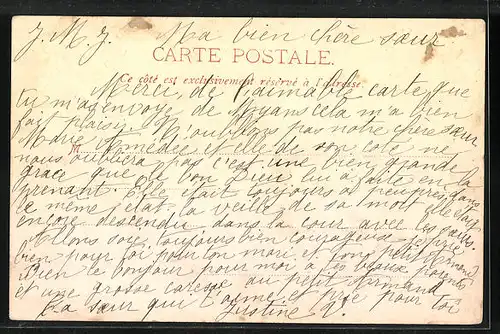 J. M. J. Ma bien chère sœur.
CARTE POSTALE.
Ce côté est exclusivement réservé à l'adresse.
Merci de l'aimable carte que
tu m'a envoyé de Myans cela m'a bien
fait plaisir. N'oublions pas notre chère sœur
Marie Amédée et elle de son côté ne
nous oubliera pas c'est une bien grande
grâce que le bon Dieu lui a faite en la
prenant. Elle était toujours à peu près dans
le même état la veille de sa mort elle était
encore descendu dans la cour avec les sœurs
Allons sois toujours bien courageuse
bien pour toi pour ton mari et ton petit
bien le bonjour pour moi à tes beaux parents
et une grosse caresse au petit Normand
Ta sœur qui t'aime et prie pour toi
Justine